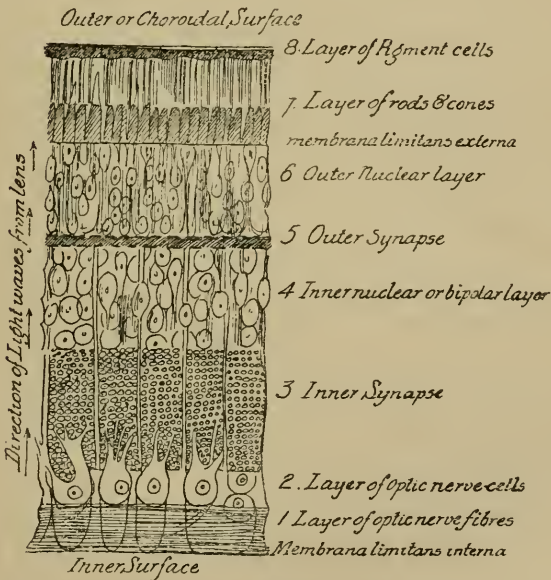 Outer or Choroidal Surface
8. Layer of Pigment cells
7. Layer of rods & cones
membrana limitans externa
6 Outer Nuclear layer
5 Outer Synapse
4 Inner nuclear or bipolar layer
3 Inner Synapse
2. Layer of optic nerve-cells
1 Layer of optic nerve fibres
Membrana limitans interna
Inner Surface
Direction of Light waves from lens